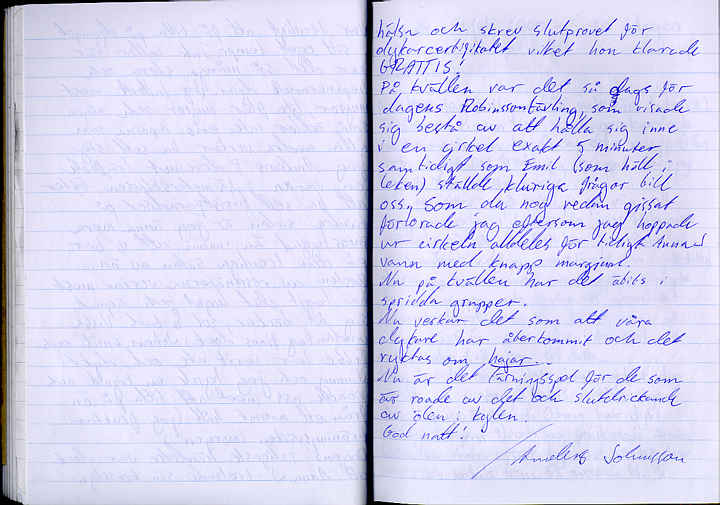 hälsn och skrev slutprovet för
dykarcertifikatet vilket hon klarade
GRATTIS!
På kvällen var det så dags för
dagens Robinssontävling, som visade
sig bestå av att hålla sig inne
i en cirkel exakt 5 minuter
samtidigt som Emil (som höll i
leken) ställde kluriga frågor till
oss. Som du nog redan gissat
förlorade jag eftersom jag hoppade
ur cirkeln alldeles för tidigt Anna
vann med knapp marginal.
Nu på kvällen har det ätits i
spridda grupper.
Nu verkar det som att våra
dykare har återkommit och det
ryktas om hajar...
Nu är det tärningsspel för de som
är roade av det och slutdrickande
av ölen i kylen.
God natt!
Anders Johnsson